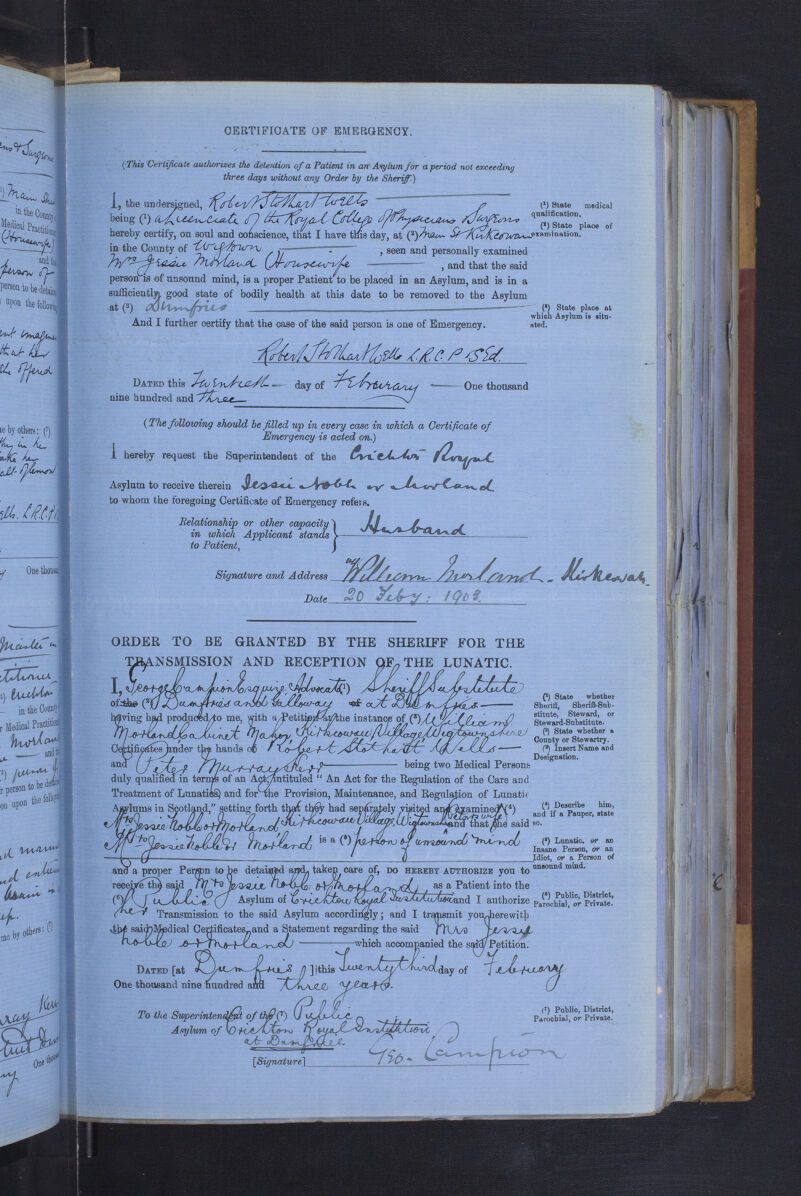 CERTIFICATE OF EMERGENCY.
(This Certificate authorizes the detention of a Patient in an Asylum for a period not exceeding
three days without any Order by the Sheriff.)
I, the undersigned, Robert Stothart Wells
being (¹) a Licenciate of the Royal College of Physicians & Surgeons
hereby certify, on soul and conscience, that I have this day, at (²) Main St Kirkcowan
in the County of Wigtown, seen and personally examined
Mrs Jessie Morland (Housewife), and that the said
person is of unsound mind, is a proper Patient to be placed in an Asylum, and is in a
sufficiently good state of bodily health at this date to be removed to the Asylum
at (³) Dumfries
And I further certify that the case of the said person is one of Emergency.
(¹) State medical
qualification.
(²) State place of
examination.
(³) State place at
which Asylum is situ-
ated.
Robert Stothart Wells L.R.C.P & S Ed.
DATED this Twentieth day of February One thousand
nine hundred and three
(The following should be filled up in every case in which a Certificate of
Emergency is acted on.)
I hereby request the Superintendent of the Crichton Royal
Asylum to receive therein Jessie Noble or Morland
to whom the foregoing Certificate of Emergency refers.
Relationship or other capacity
in which Applicant stands
to Patient,
} Husband
Signature and Address William Morland - Kirkcowan.
Date 20 Feby: 1903.
ORDER TO BE GRANTED BY THE SHERIFF FOR THE
TRANSMISSION AND RECEPTION OF THE LUNATIC.
I, George Campion Esquire Advocate (¹) Sheriff Substitute
of the (²) Dumfries and Galloway at Dumfries
having had produced to me, with a Petition at the instance of (³) William
Morland Cabinet Maker, Kirkcowan Village, Wigtownshire
Certificates under the hands of Robert Stothart Wells
and Peter Murray Kerr being two Medical Persons
duly qualified in terms of an Act, intituled "An Act for the Regulation of the Care and
Treatment of Lunatics, and for the Provision, Maintenance, and Regulation of Lunatic
Asylums in Scotland," setting forth that they had separately visited and examined (⁴)
Mrs Jessie Noble or Morland Kirkcowan Village, Wigtownshire and that the said
Mrs Jessie Noble or Morland is a (⁵) person of unsound mind
and a proper Person to be detained and taken care of, DO HEREBY AUTHORIZE you to
receive the said Mrs Jessie Noble or Morland as a Patient into the
(⁶) Public Asylum of Crichton Royal Institution and I authorize
her Transmission to the said Asylum accordingly; and I transmit you herewith
the said Medical Certificates, and a Statement regarding the said Mrs Jessie
Noble or Morland which accompanied the said Petition.
(¹) State whether
Sheriff, Sheriff-Sub-
stitute, Steward, or
Steward-Substitute.
(²) State whether a
County or Stewartry.
(³) Insert Name and
Designation.
(⁴) Describe him,
and if a Pauper, state
so.
(⁵) Lunatic, or an
Insane Person, or an
Idiot, or a Person of
unsound mind.
(⁶) Public, District,
Parochial, or Private.
DATED [at Dumfries] this Twenty third day of February
One thousand nine hundred and three years.
To the Superintendent of the (⁷) Public
Asylum of Crichton Royal Institution
at Dumfries
(⁷) Public, District,
Parochial, or Private.
[Signature] Geo. Campion